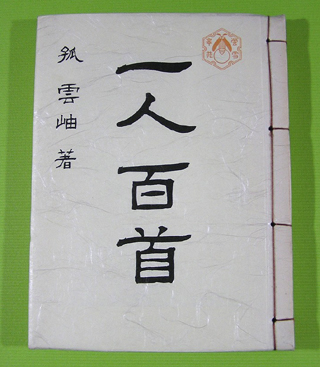 一人百首
孤雲岫著